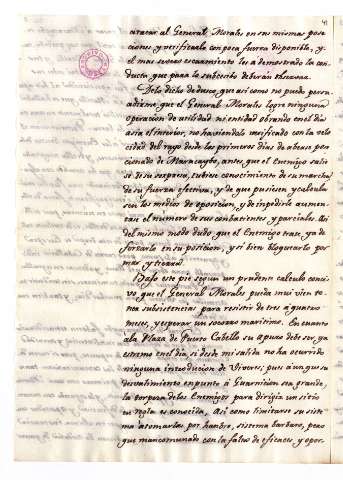 atacar al General Morales en sus mismas posi-
ciones y verificarlo con poca fuerza disponible, y
el mas severo escarmiento les a demostrado la con-
ducta, que para lo subcesibo deberán observar.
De lo dicho deduzco, que asi como no puedo persu-
adirme que el General Morales logre ninguna
operacion de utilidad ni entidad obrando en el dia
acia el interior, no haviendolo verificado con la velo-
cidad del rayo desde los primeros dias de aberse pose-
cionado de Maracaybo, antes que el Enemigo salie-
se de su sorpresa, tubiese conocimiento de su marcha,
de su fuerza efectiva, y de que pusiesen y calcula-
sen los medios de oposicion, y de impedirle aumen-
tase el numero de sus combatientes y parciales. Asi
del mismo modo dudo, que el Enemigo trate ya de
forzarlo en su posicion, y si bien bloquearlo por
mar y tierra.
Bajo este pie segun un prudente calculo conci-
vo que el General Morales pueda mui bien te-
ner subsistencias para resistir de tres á quatro
meses, y esperar un socorro maritimo. En cuanto
á la Plaza de Puerto Cabello su apuro debe ser ya
estremo en el dia si desde mi salida no ha ocurrido
ninguna introducion de Viveres; pues aunque su
desvalimiento en punto á Guarnicion sea grande,
la torpeza de los Enemigos para dirigir un sitio
en regla es conocida, Asi como limitarse su siste-
ma á tomarlos por hambre, sistema barbaro, pero
que mancomunado con la falta de eficaces y opor-